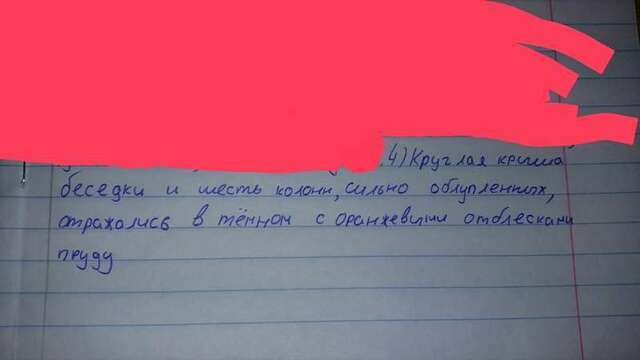 4) Круглая крыша
беседки и шесть колонн, сильно облупленных,
отражались в тёмном с оранжевыми отблесками
пруду